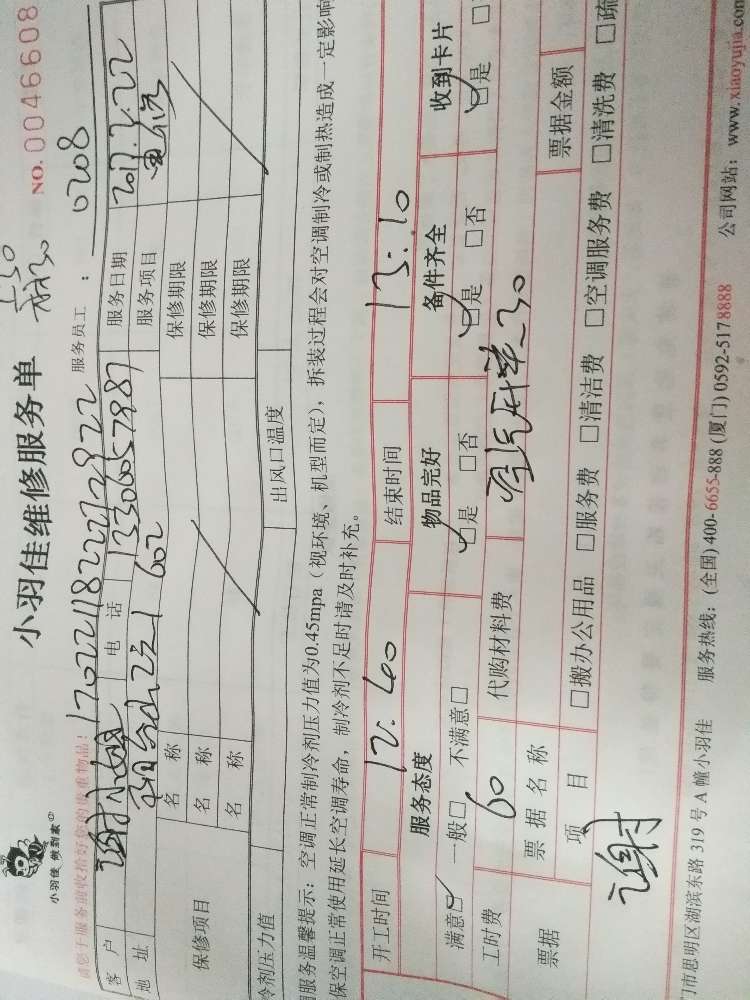 小羽佳 候到家
小羽佳维修服务单
NO.0046608
请您于服务前收拾好您的贵重物品！
17022118222122822
服务员工：
0208
客户
谢小姐
电话
13306057987
服务日期
2017.2.22
地址
602
服务项目
保修项目
名称
保修期限
名称
保修期限
名称
保修期限
冷剂压力值
出风口温度
服务温馨提示：空调正常制冷剂压力值为0.45mpa（视环境、机型而定），拆装过程会对空调制冷或制热造成一定影响
保空调正常使用延长空调寿命，制冷剂不足时请及时补充。
开工时间
12:40
结束时间
13:10
服务态度
物品完好
备件齐全
收到卡片
满意□ 一般□ 不满意□
□是 □否
□是 □否
□是 □
工时费
60
代购材料费
票据
票据名称
票据金额
项目
□搬办公用品 □服务费 □清洁费 □空调服务费 □清洗费 □疏
谢
门市思明区湖滨东路 319 号 A 幢小羽佳 服务热线：(全国) 400-6655-888 (厦门) 0592-5178888 公司网站：www.xiaoyujia.com